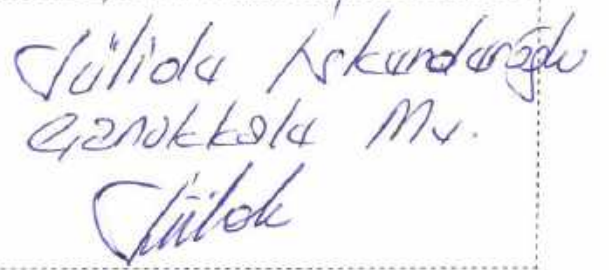 Jülide İskenderoğlu
Çanakkale Mv.